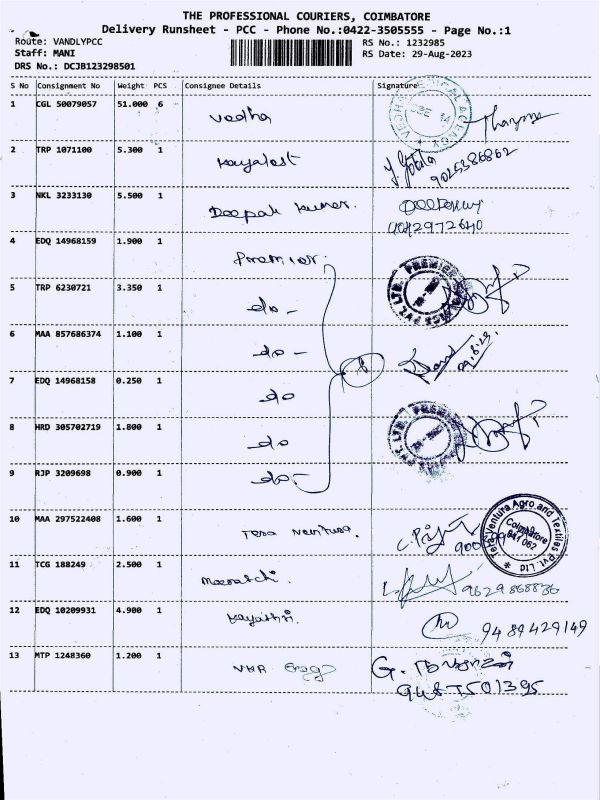 THE PROFESSIONAL COURIERS, COIMBATORE
Delivery Runsheet - PCC - Phone No.:0422-3505555 - Page No.:1
Route: VANDLYPCC RS No.: 1232985
Staff: MANI RS Date: 29-Aug-2023
DRS No.: DCJB123298501
S No Consignment No Weight PCS Consignee Details Signature
1 CGL 50079057 51.000 6 Vedha
2 TRP 1071100 5.300 1 9025386862
3 NKL 3233130 5.500 1 Deepak Kumar.
4 EDQ 14968159 1.900 1 Premier.
5 TRP 6230721 3.350 1 do -
6 MAA 857686374 1.100 1 do -
7 EDQ 14968158 0.250 1 do
8 HRD 305702719 1.800 1 do
9 RJP 3209698 0.900 1 do -
10 MAA 297522408 1.600 1 Tera Ventura.
Tera Ventura Agro and Textiles Pvt. Ltd
Coimbatore
641 062
11 TCG 188249 2.500 1 Meenatchi. 9629868836
12 EDQ 10209931 4.900 1 Gayathri. 9489429149
13 MTP 1248360 1.200 1
9487501395